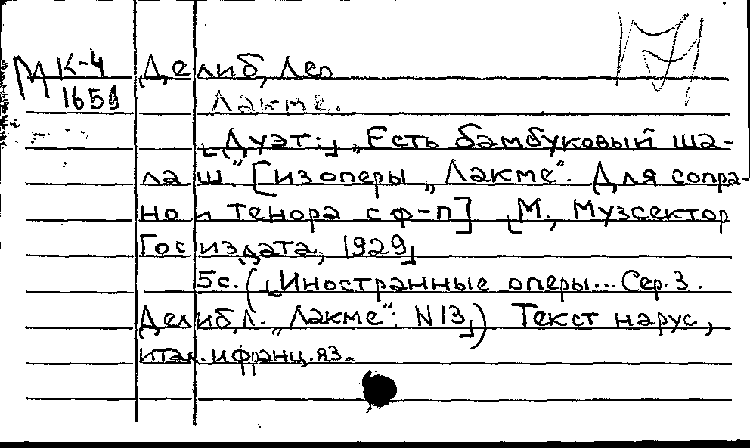 М К-4 Делиб, Лео
1659 Лакме.
[Дуэт:] „Есть бамбуковый ша-
лаш." [из оперы „Лакме". Для сопра-
но и тенора с ф-п] [М., Музсектор
Госиздата, 1929]
5с. ([Иностранные оперы... Сер. 3.
Делиб, Л. „Лакме": N 13]) Текст на рус,
итал. и франц. яз.